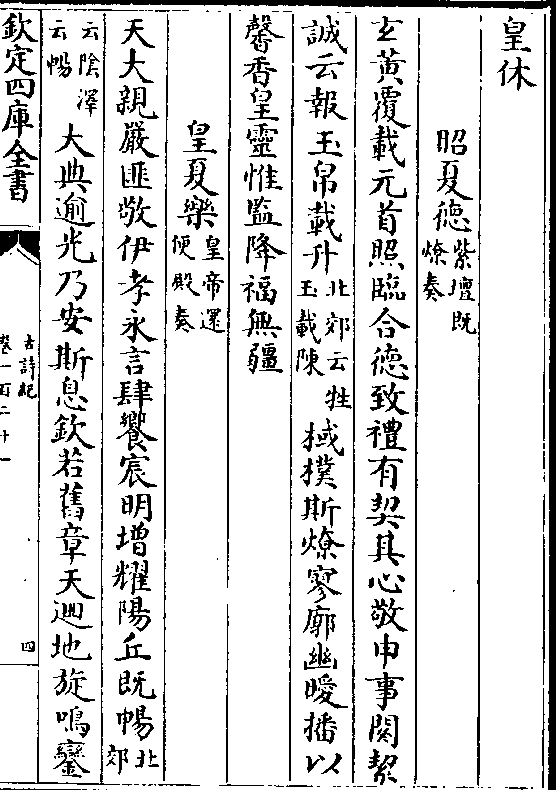 皇休
昭夏德紫壇既燎奏
𤣥黄覆載元首照臨合德致禮有契其心敬申事闋絜
誠云報玉帛載升北郊云牲玉載陳棫撲斯燎寥廓幽曖播以
馨香皇靈惟監降福無疆
皇夏樂皇帝還便殿奏
天大親嚴匪敬伊孝永言肆饗宸明增耀陽丘既暢北郊
云陰澤云暢大典逾光乃安斯息欽若舊章天廻地旋鳴鑾
欽定四庫全書
古詩紀
卷一百二十一
四